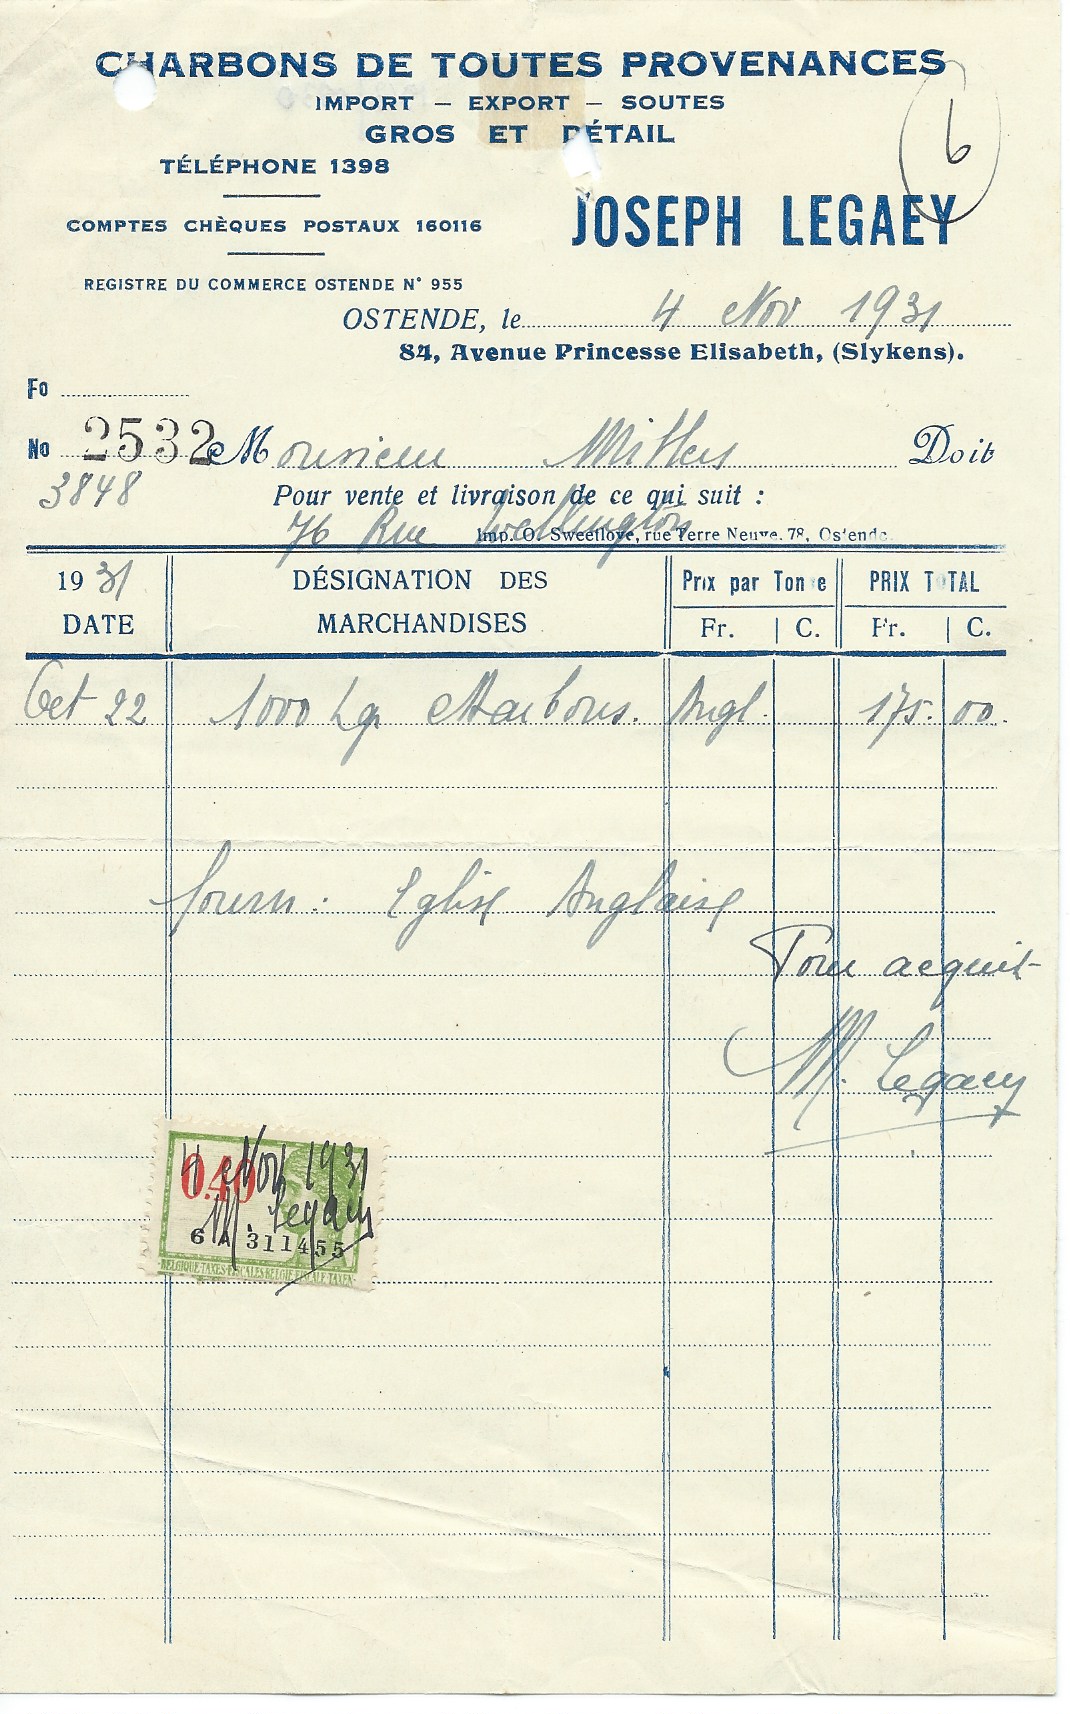 CHARBONS DE TOUTES PROVENANCES
IMPORT — EXPORT — SOUTES
GROS ET DÉTAIL
6
TÉLÉPHONE 1398
COMPTES CHÈQUES POSTAUX 160116
JOSEPH LEGAEY
REGISTRE DU COMMERCE OSTENDE N° 955
OSTENDE, le 4 Nov 1931
84, Avenue Princesse Elisabeth, (Slykens).
Fo
No 2532 Monsieur Doit
3848
Pour vente et livraison de ce qui suit :
76 Rue Wellington
Imp. O. Sweetlove, rue Terre Neuve, 78, Ostende.
1931 DATE
DÉSIGNATION DES MARCHANDISES
Prix par Tonne Fr. C.
PRIX TOTAL Fr. C.
Oct 22 1000 kg Charbons. Angl. 175. 00.
fourn : Eglise Anglaise
Pour acquit
M. Legaey
0.40
4 Nov 1931
M. Legaey
6 A 311455
BELGIQUE-TAXES FISCALES BELGIE-FISCALE TAXEN